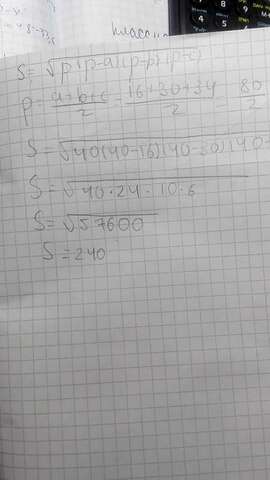 классно
S = √p(p-a)(p-b)(p-c)
p = a+b+c/2 = 16+30+34/2 = 80/2
S = √40(40-16)(40-30)(40-
S = √40·24·10·6
S = √57600
S = 240